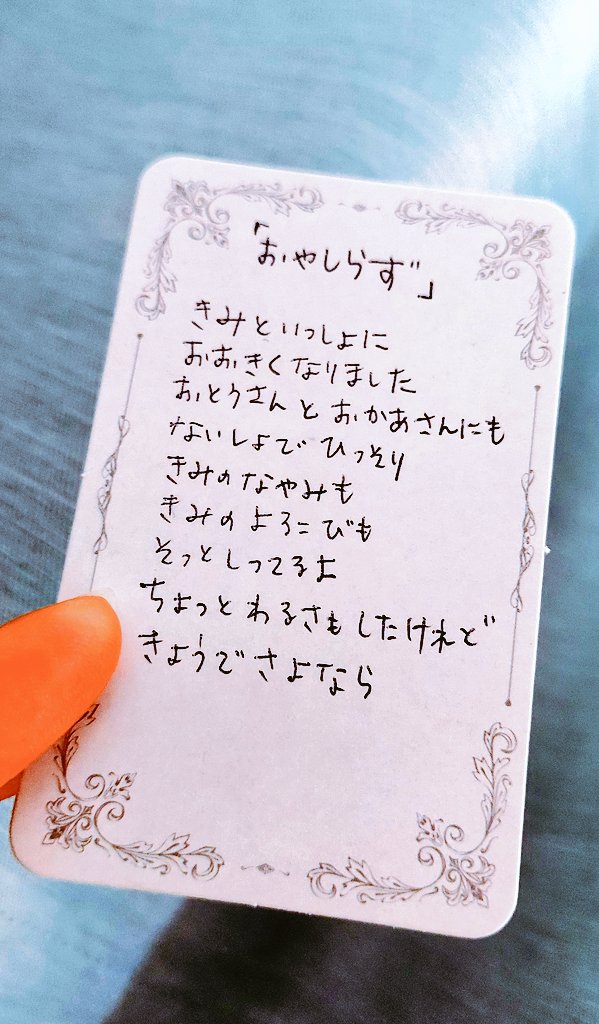 「おやしらず」
きみといっしょに
おおきくなりました
おとうさんと おかあさんにも
ないしょで ひっそり
きみの なやみも
きみの よろこびも
そっと しってるよ
ちょっと わるさも したけれど
きょうで さよなら